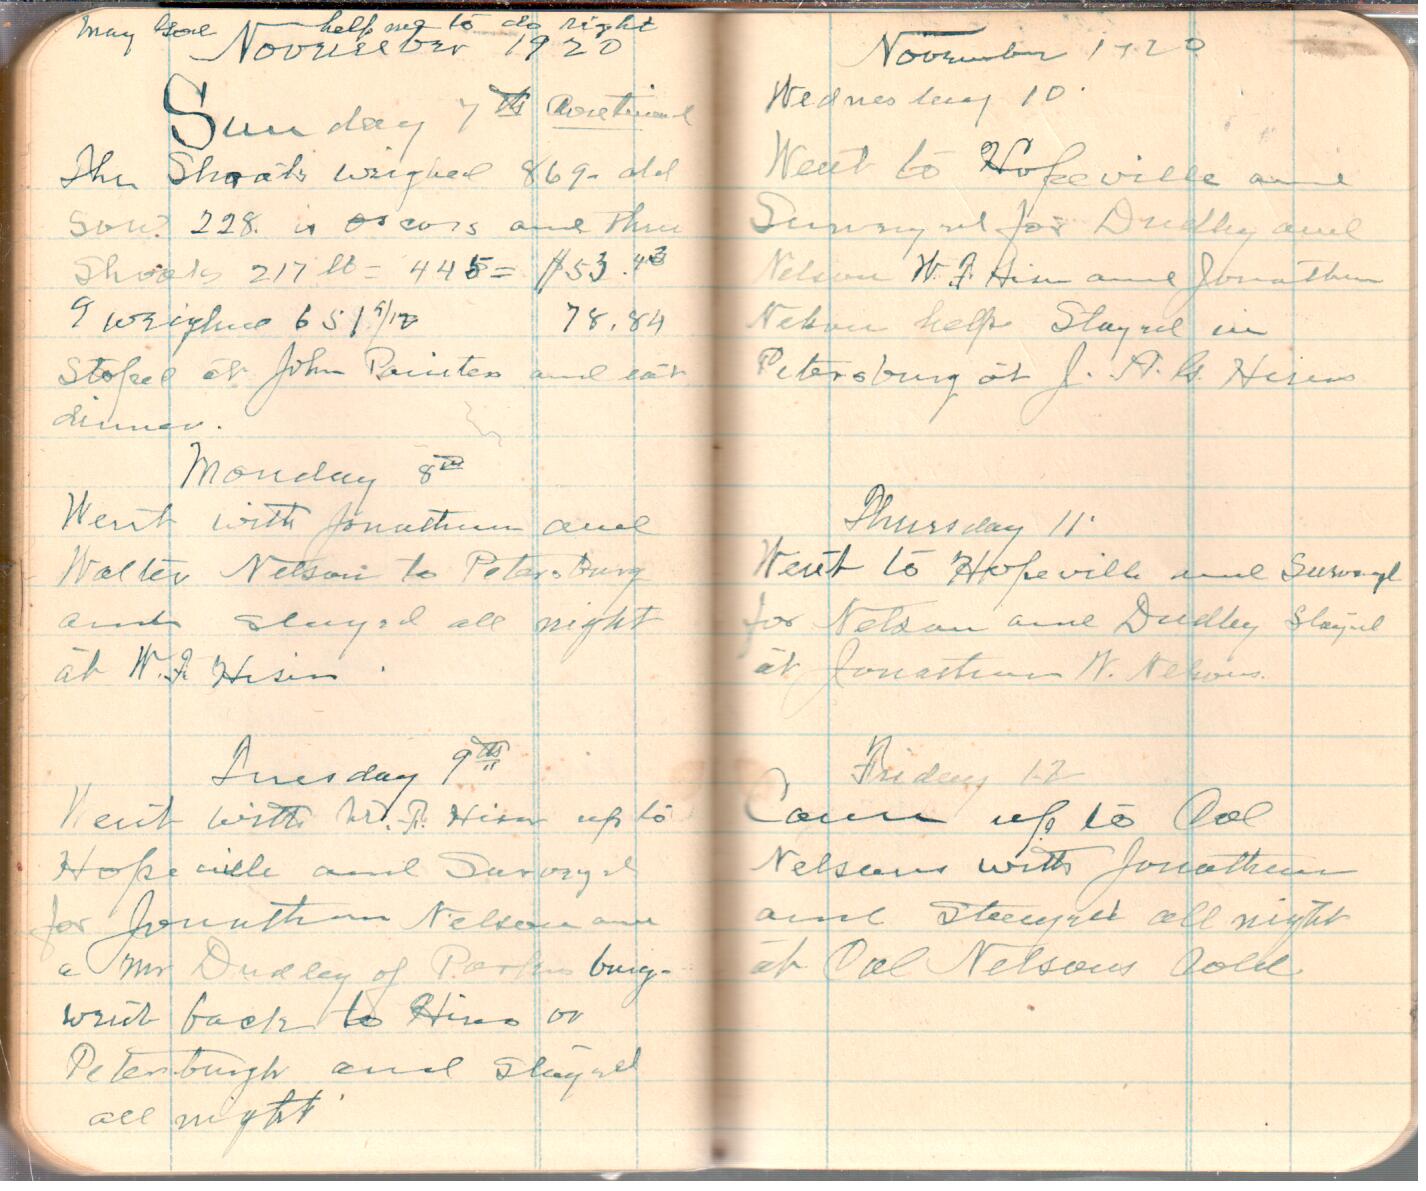 may God help me to do right
November 1920
Sunday 7th Continued
The Shoats weighed 869- old
sow 228. is Oscars and Three
Shoats 217 lb = 445 = $53.43
9 weighed 651 9/12 78.84
Stoped at John Painters and eat
dinner.
Monday 8th
Went with Jonathan and
Walter Nelson to Petersburg
and stayed all night
at W. F. Hiser
Tuesday 9th
Went with W. F. Hiser up to
Hopeville and Surveyed
for Jonathan Nelson and
a Mr Dudley of Parkersburg-
went back to Hisers or
Petersburgh and stayed
all night
November 1920
Wednesday 10.
Went to Hopeville and
Surveyed for Dudley and
Nelson W. F. Hiser and Jonathan
Nelson help Stayed in
Petersburg at J. A. G. Hisers
Thursday 11.
Went to Hopeville and Surveyed
for Nelson and Dudley Stayed
at Jonathan W. Nelsons.
Friday 12
Came up to Cal
Nelsons with Jonathan
and Stayed all night
at Cal Nelsons Cold